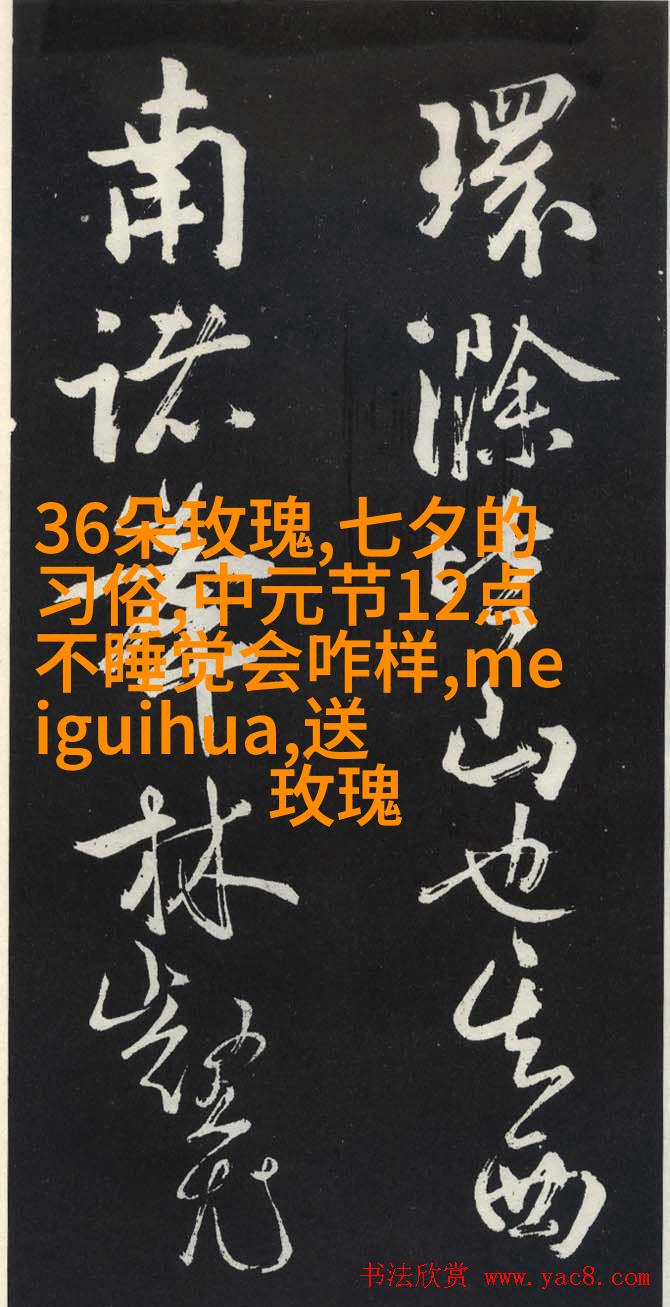 環滁皆山也其西
南諸峯林壑尤
36朵玫瑰,七夕的
习俗,中元节12点
不睡觉会咋样,me
iguihua,送
玫瑰
书法欣赏 www.yac8.com